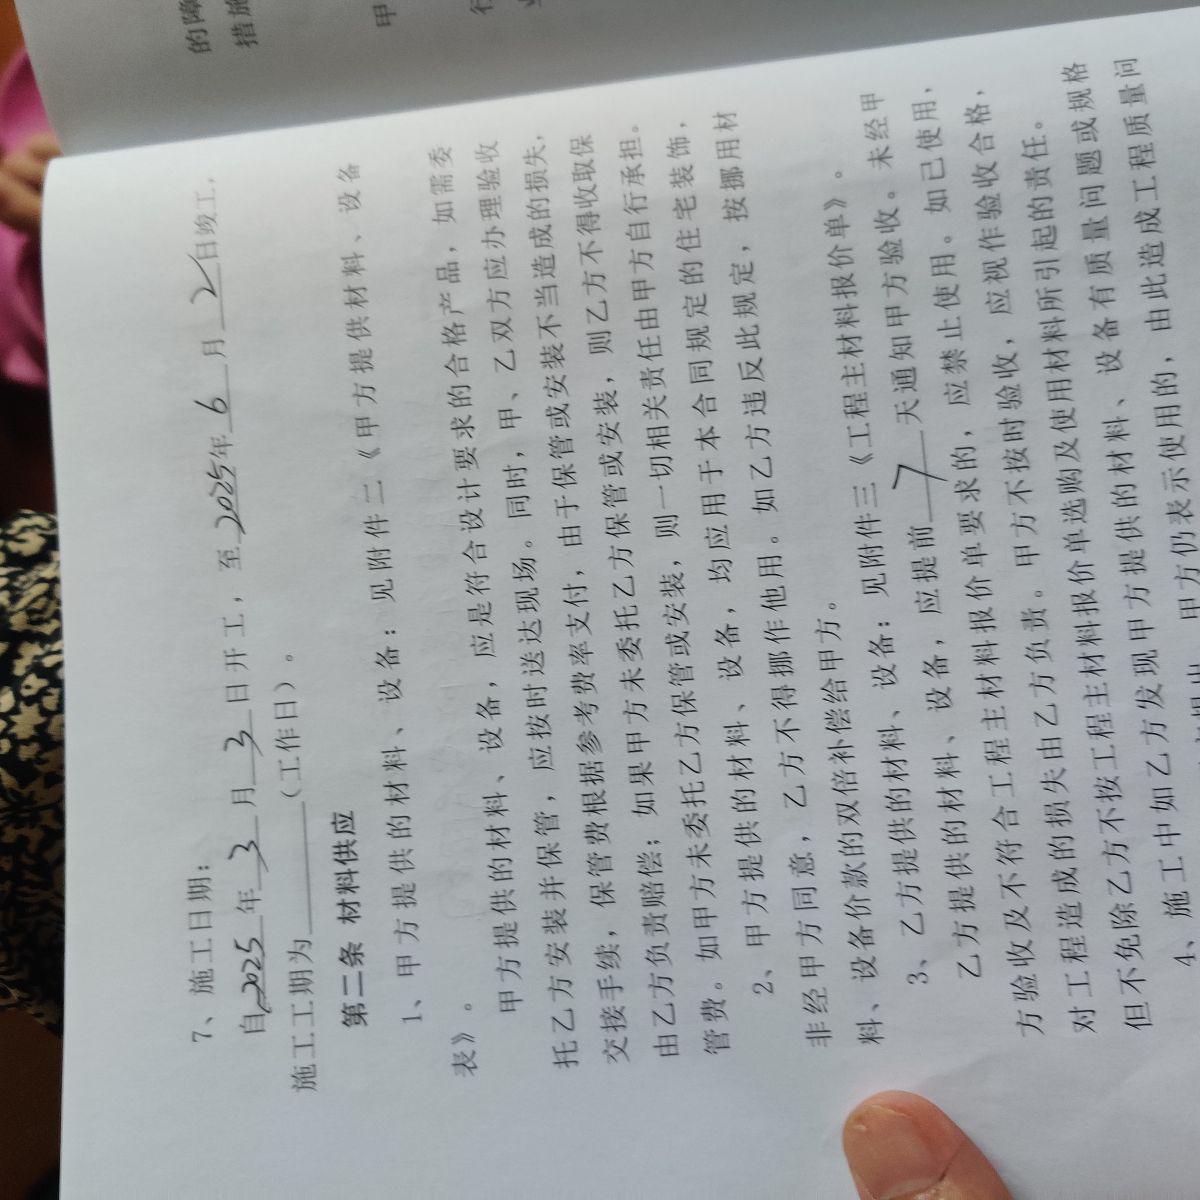 的障
措施
甲
7、施工日期：
自2025年3月3日开工，至2025年6月2日竣工，
施工工期为______（工作日）。
第二条 材料供应
1、甲方提供的材料、设备：见附件二《甲方提供材料、设备
表》。
甲方提供的材料、设备，应是符合设计要求的合格产品，如需委
托乙方安装并保管，应按时送达现场。同时，甲、乙双方应办理验收
交接手续，保管费根据参考费率支付，由于保管或安装不当造成的损失，
由乙方负责赔偿；如果甲方未委托乙方保管或安装，则乙方不得收取保
管费。如甲方未委托乙方保管或安装，则一切相关责任由甲方自行承担。
2、甲方提供的材料、设备，均应用于本合同规定的住宅装饰，
非经甲方同意，乙方不得挪作他用。如乙方违反此规定，按挪用材
料、设备价款的双倍补偿给甲方。
3、乙方提供的材料、设备：见附件三《工程主材料报价单》。
乙方提供的材料、设备，应提前7天通知甲方验收。未经甲
方验收及不符合工程主材料报价单要求的，应禁止使用。如已使用，
对工程造成的损失由乙方负责。甲方不按时验收，应视作验收合格，
但不免除乙方不按工程主材料报价单选购及使用材料所引起的责任。
4、施工中如乙方发现甲方提供的材料、设备有质量问题或规格
甲方仍表示使用的，由此造成工程质量问